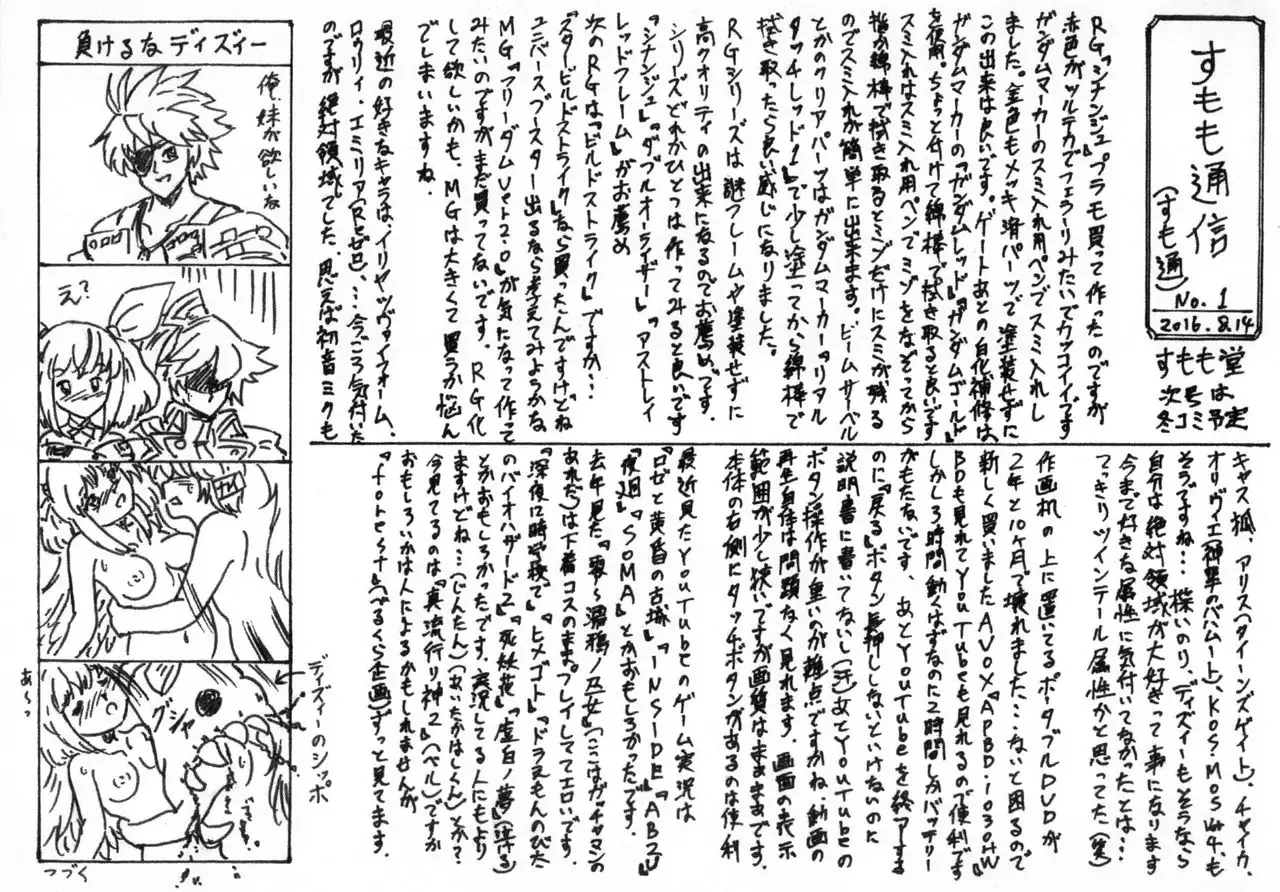 すもも通信
(すもも通)
No.1
2016.8.14
すもも堂
次号は
冬コミ予定
RG『シナンジュ』プラモ買って作ったのですが
赤色がツルテカでフェラーリみたいでカッコイイです
ガンダムマーカーのスミ入れ用ペンでスミ入れし
ました。金色もメッキ済パーツで塗装せずに
この出来は良いです。ゲートあとの白化補修は
ガンダムマーカーの『ガンダムレッド』『ガンダムゴールド』
を使用。ちょっと付けて綿棒で拭き取ると良いです
スミ入れはスミ入れ用ペンでミゾをなぞってから
指か綿棒で拭き取るとミゾだけにスミが残る
のでスミ入れが簡単に出来ます。ビームサーベル
とかのクリアパーツはガンダムマーカー『リアル
タッチレッド1』で少し塗ってから綿棒で
拭き取ったら良い感じになりました。
RGシリーズは謎フレームや塗装せずに
高クオリティの出来になるのでお薦めです。
シリーズどれかひとつは作ってみると良いです
『シナンジュ』『ダブルオーライザー』『アストレイ
レッドフレーム』がお薦め
次のRGは『ビルドストライク』ですか…
『スタービルドストライク』なら買ったんですけどね
ユニバースブースター出るなら考えてみようかな
MG『フリーダムVer2.0』が気になって作って
みたいのですがまだ買ってないです。RG化
して欲しいかも、MGは大きくて買うか悩ん
でしまいますね。
最近の好きなキャラは、イリヤツヴァイフォーム、
ロゥリィ・エミリア(Reゼロ)、…今ごろ気付いた
のですが絶対領域でした。思えば初音ミクも
キャス狐、アリス(クイーンズゲイト)、チャイカ、
オリヴィエ(神撃のバハムート)、KOS-MOS Ver4、も
そうですね…操いのり、ディズィーもそうなら
自分は絶対領域が大好きって事になります
今まで好きな属性に気付いてなかったとは…
てっきりツインテール属性かと思ってた(笑)
作画机の上に置いてるポータブルDVDが
2年と10ヶ月で壊れました…ないと困るので
新しく買いましたAVOX『APBD-1030HW』
BDも見れてYouTubeも見れるので便利です
しかし3時間動くはずなのに2時間しかバッテリー
がもたないです、あとYouTubeを終了する
のに『戻る』ボタン長押ししないといけないのに
説明書に書いてないし(汗)あとYouTubeの
ボタン操作が重いのが難点ですかね、動画の
再生自体は問題なく見れます。画面の表示
範囲が少し狭いですが画質はまあまあです。
本体の右側にタッチボタンがあるのは便利
最近見たYouTubeのゲーム実況は
『ロゼと黄昏の古城』『INSIDE』『AB2U』
『夜廻』『SOMA』とかおもしろかったです。
去年見た『零~濡鴉ノ巫女』(ここはガッチャマンの
あれだろ)は下着コスのまま。プレイしててエロいです。
『深夜に時学校で』『ヒメゴト』『ドラえもんのびた
のバイオハザード2』『死妖花』『虚白ノ夢』(泣ける)
とかおもしろかったです。実況してる人にもより
ますけどね…(じんたん)(あいたかはしくん)とか?
今見てるのは『真流行り神2』(ベル)ですか
おもしろいかは人によるかもしれませんが
『forest』(べるくら企画)ずっと見てます。
負けるなディズィー
俺、妹が欲しいな
え?
グシャ
あ~っ
ディズィーのシッポ
つづく